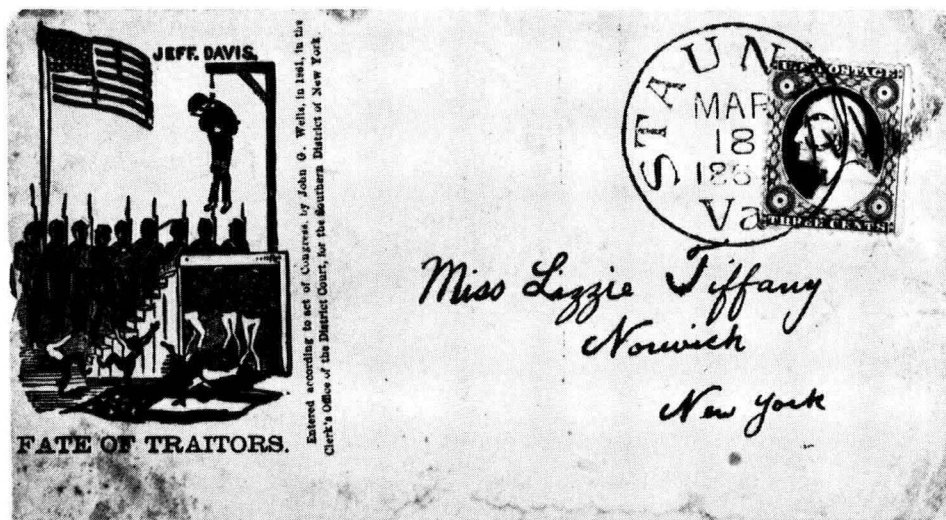 JEFF. DAVIS.
FATE OF TRAITORS.
Entered according to act of Congress, by John G. Wells, in 1861, in the
Clerk's Office of the District Court, for the Southern District of New York.
STAUN
MAR
18
186
Va
U.S. POSTAGE
THREE CENTS
Miss Lizzie Tiffany
Norwich
New York